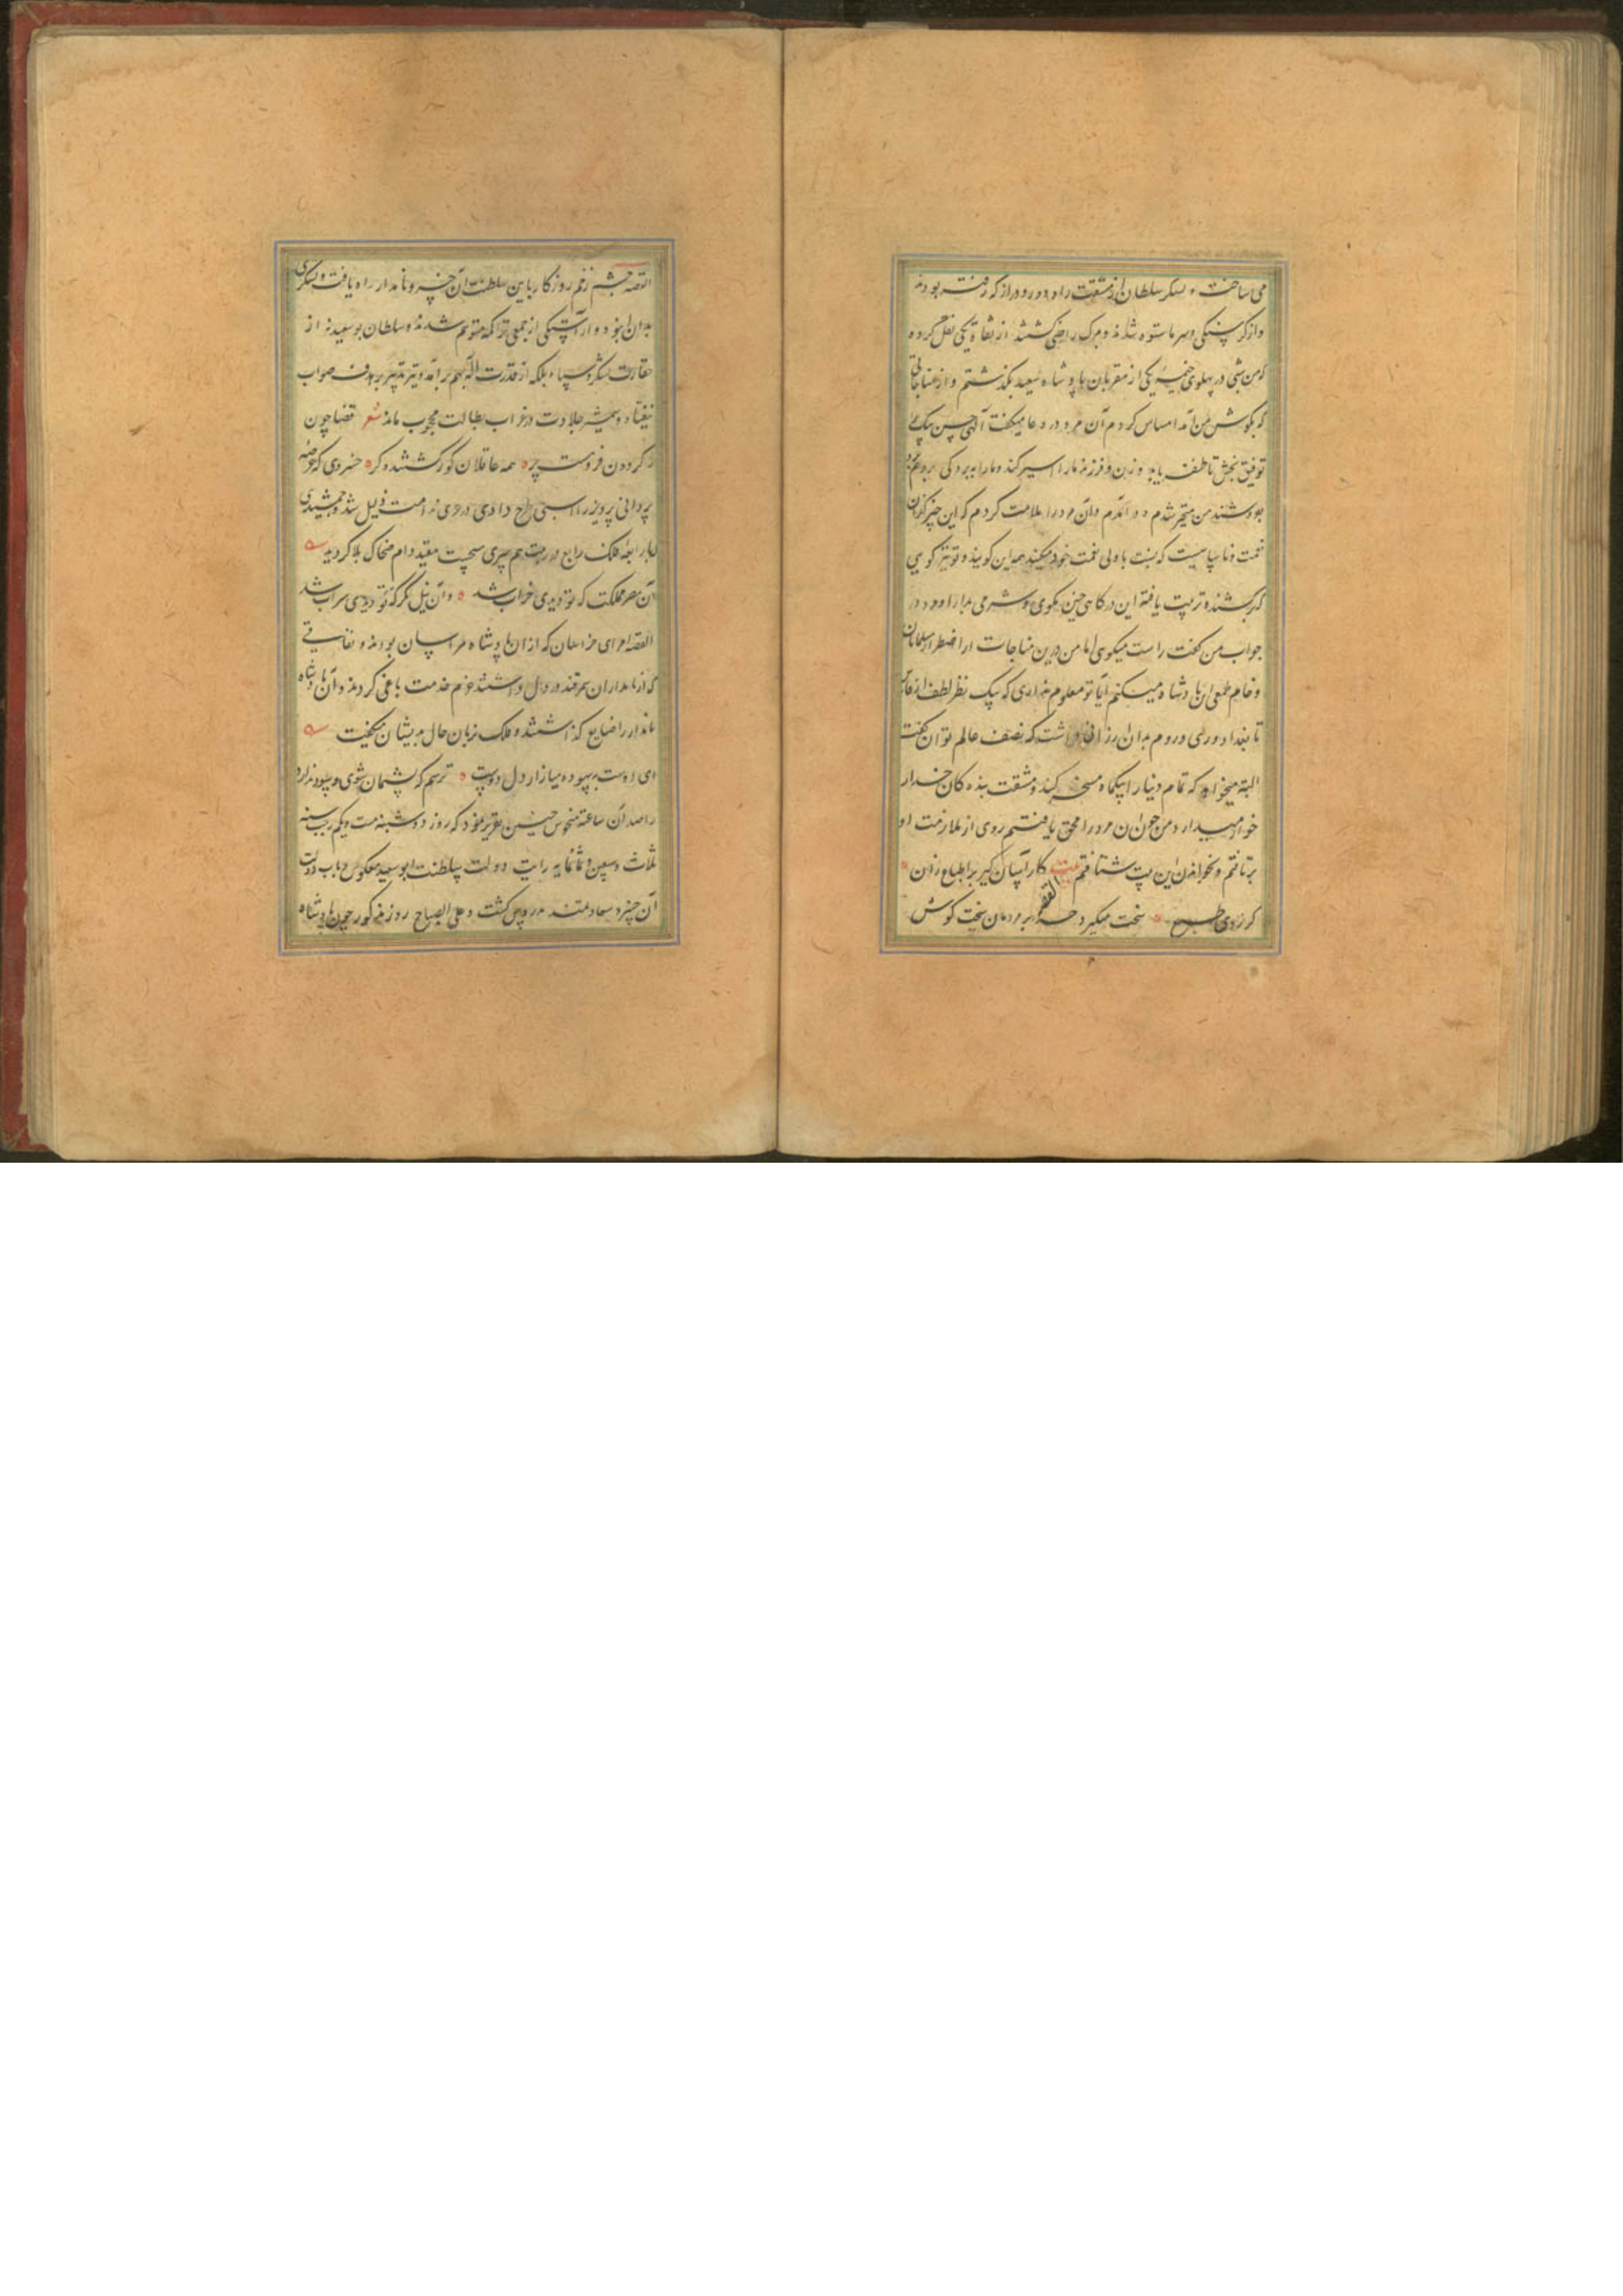 می ساخت و لشکر سلطان از مشقت راه دور و دراز که رفته بودند
و از گرسنگی و سرما ستوه شده و بمرگ راضی گشتند از ثقاة یکی نقل کرده
که من شبی در پهلوی خیمه یکی از مقربان پادشاه سعید بگذشتم و از مناجاتی
که بگوش من آمد احساس کردم آن مرد در دعا میگفت آلهی حسن بیک را
توفیق بخش تا ظفر یابد و زن و فرزند ما را اسیر کند و ما را ببردگی
من متحیر شدم و در آمدم و آن مرد را ملامت کردم که این چه کفران
نعمت و ناسپاسیست که نسبت با ولی نعمت خود میکنید همه این گویند و تو نیز گویی
که برکشنده و تربیت یافته این درگاهی چنین بگوی و شرمی بدار او در
جواب من گفت راست میگوی اما من این مناجات از اضطرار سلمانان
و خام طمعی این پادشاه میکنم آیا تو معلوم نداری که بیک نظر لطف از
تا بغداد و ری و روم بدان ارزانی داشت که نصف عالم توان گفت
البته میخواهد که تمام دنیا را بیکماه مسخر کند و مشقت بندگان خدا را
خوار میدارد من چون آن مرد را محق یافتم روی از ملازمت او
برتافتم و بخواندن این بیت شتافتم بیت کار آسان گیر بر اطباع زان
کز روی طبع سخت میگیرد جهان بر مردمان سخت کوش
القصه چشم زخم روزگار باین سلطنت آن خسرو نامدار راه یافت و لشکری
بدان انبوه و آراستگی از جمعی تراکمه متوهم شدند و سلطان بوسعید نه از
حقارت لشکر و سپاه بلکه از قدرت اله بهم برآمد و تیر تدبیر بر هدف صواب
نیفتاد و شمشیر جلادت در غراب بطالت محجوب ماند شعر قضا چون
ز گردون فرو هشت پر همه عاقلان کور گشتند و کر خسروی که عرصه
پردانی پرویز را اسبی طرح دادی در عری ندامت ذلیل شد و جمشیدی
که با رابعه فلک رابع در رمت هم سپری میجست مقید دام ضحاک بلا گردید
آن مصر مملکت که تو دیدی خراب شد وان نیل مکرمت که تو دیدی سراب شد
القصه امرای خراسان که از ان پادشاه هراسان بودند و نفاقی
که از نامداران سمرقند در دل داشتند عزم خدمت باغی کردند و آن پادشاه
نامدار را ضایع گذاشتند و فلک بزبان حال بدیشان میگفت
ای دوست بیهوده میازار دل دوست ترسم که پشیمان شوی و سود ندارد
راصد آن ساعت منحوس چنین تقریر نمود که روز دوشنبه بیست و یکم رجب سنه
ثلاث و سبعین و ثمانمایه رایت دولت سلطنت ابوسعید معکوس و باب دولت
آن خسرو سعادتمند مدروس گشت و علی الصباح روز مذکور چون پادشاه